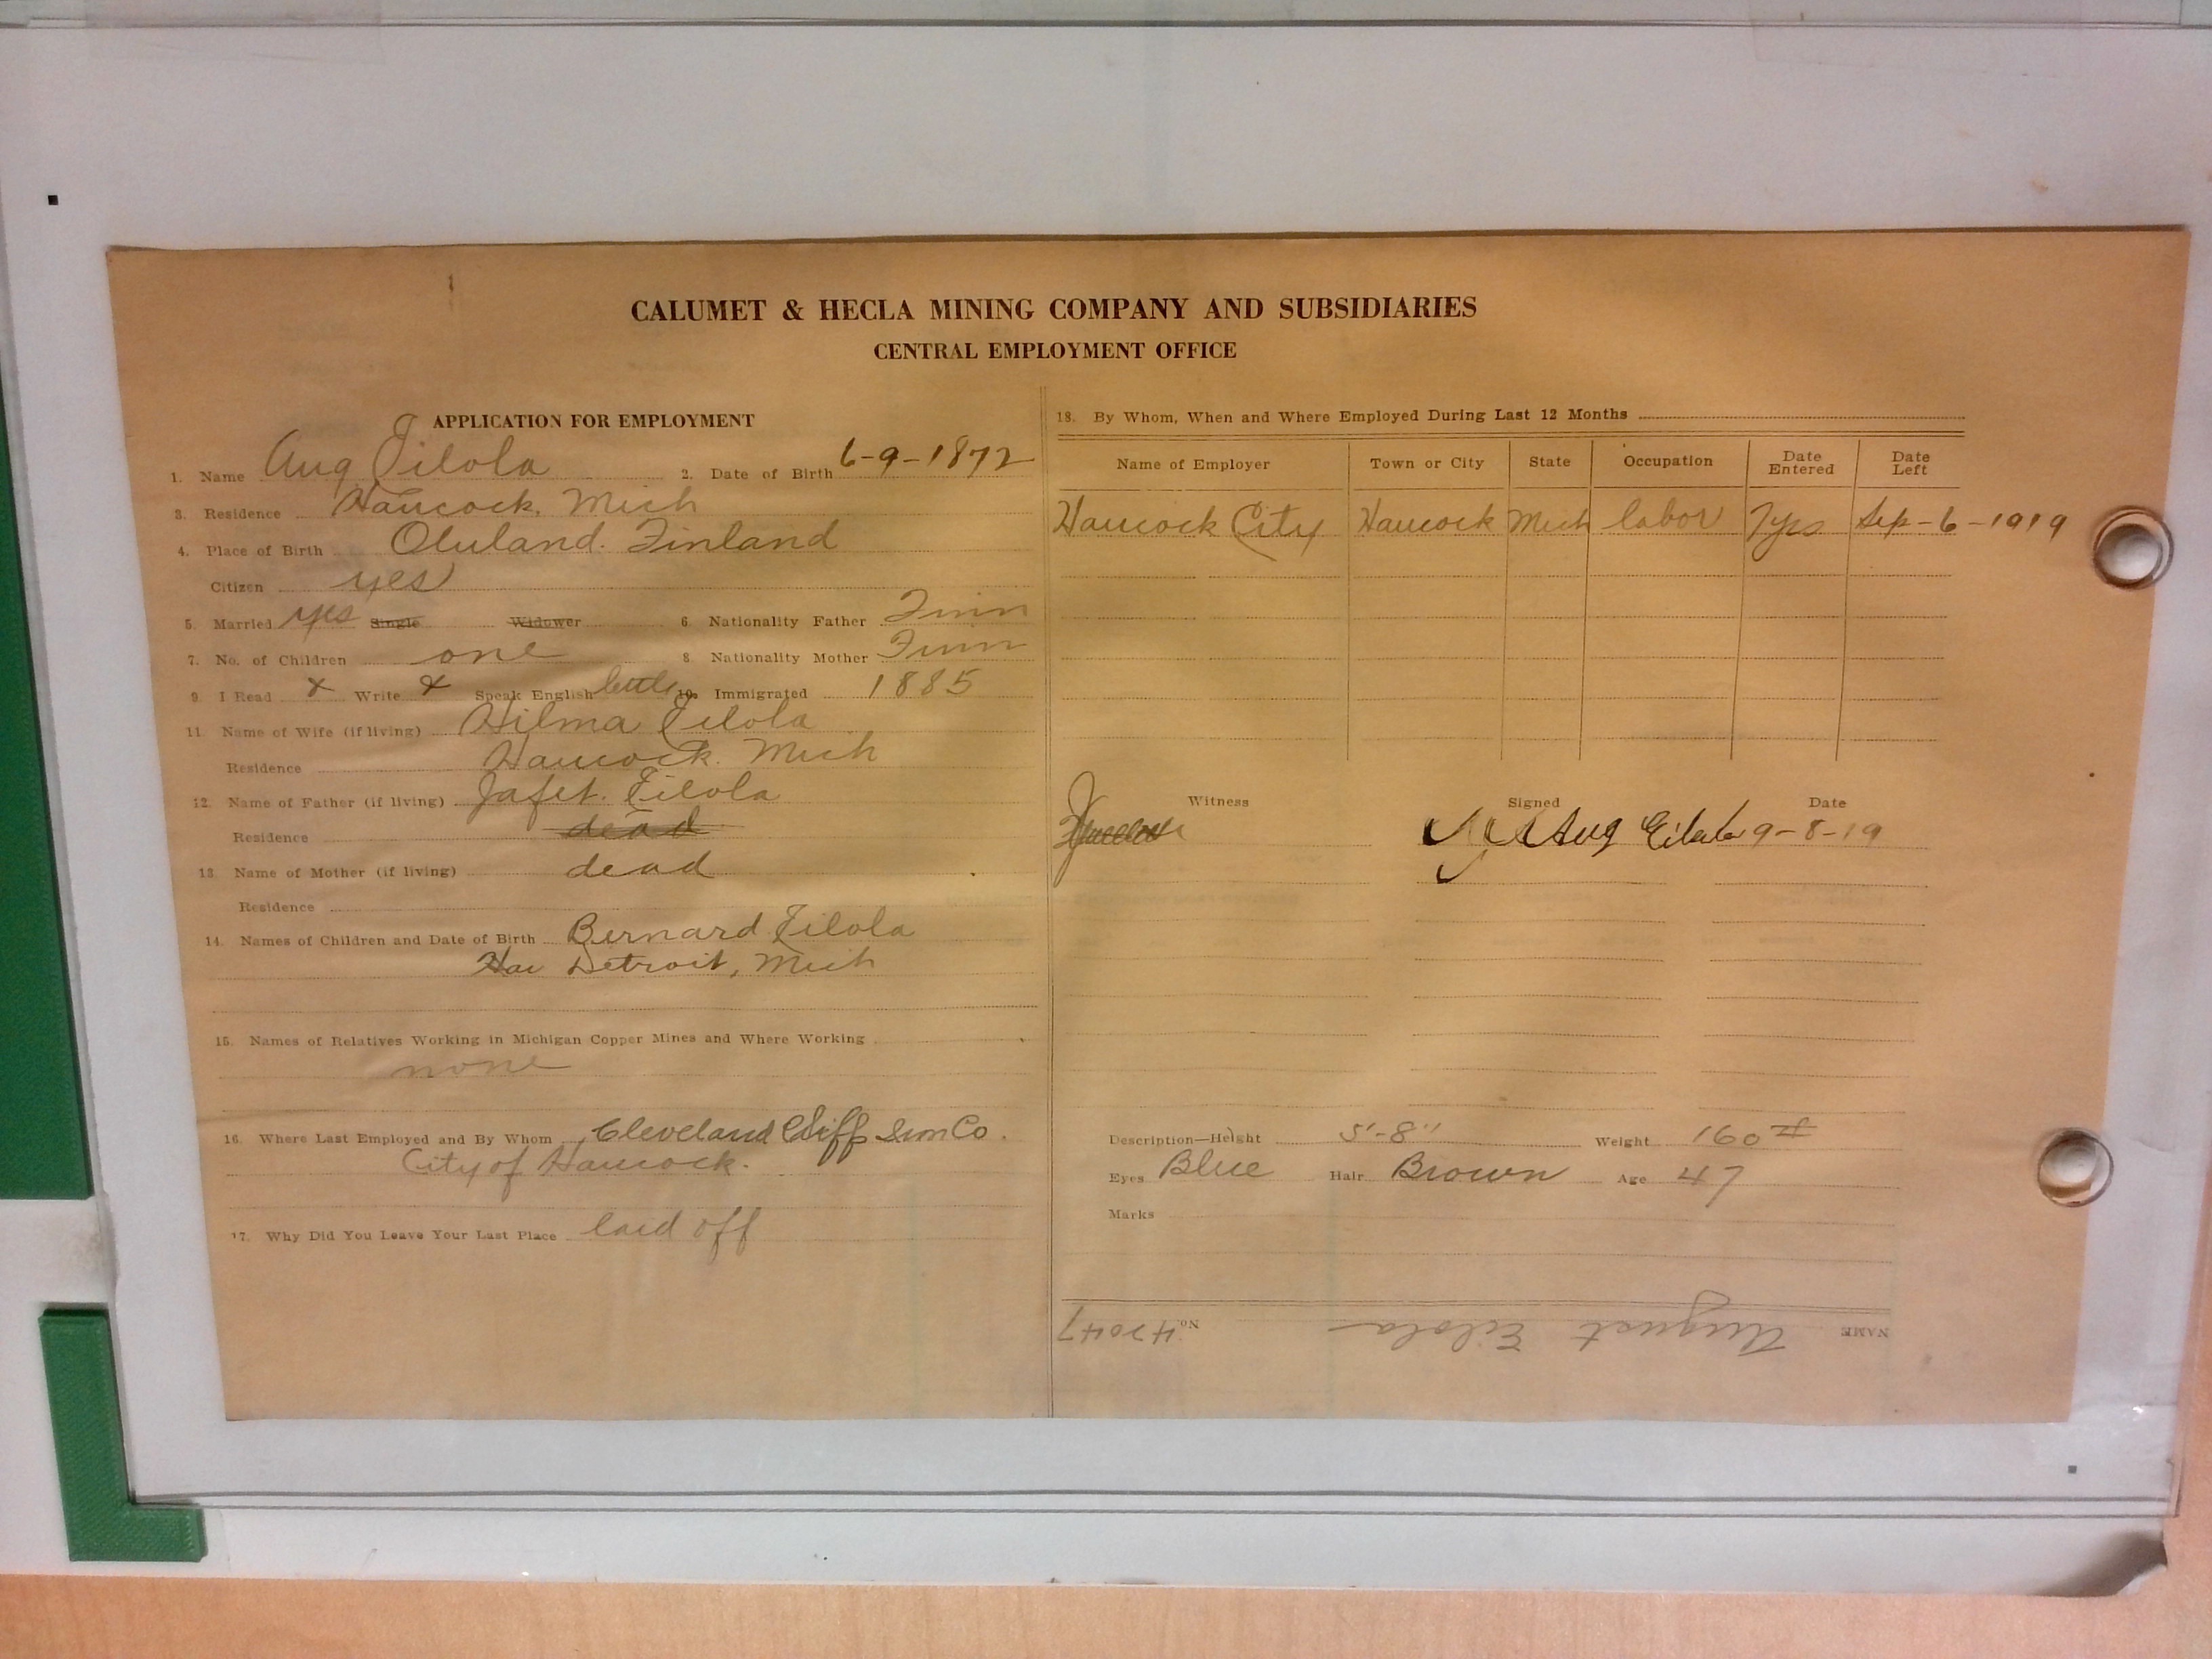 CALUMET & HECLA MINING COMPANY AND SUBSIDIARIES
CENTRAL EMPLOYMENT OFFICE
APPLICATION FOR EMPLOYMENT
1. Name Aug Eilola 2. Date of Birth 6-9-1872
3. Residence Hancock, Mich
4. Place of Birth Oluland. Finland
Citizen yes
5. Married yes Single Widower 6. Nationality Father Finn
7. No. of Children one 8. Nationality Mother Finn
9. I Read x Write x Speak English little 10. Immigrated 1885
11. Name of Wife (if living) Hilma Eilola
Residence Hancock. Mich
12. Name of Father (if living) Jafet. Eilola
Residence dead
13. Name of Mother (if living) dead
Residence
14. Names of Children and Date of Birth Bernard Eilola
Han Detroit, Mich
15. Names of Relatives Working in Michigan Copper Mines and Where Working
none
16. Where Last Employed and By Whom Cleveland Cliff Co.
City of Hancock.
17. Why Did You Leave Your Last Place laid off
18. By Whom, When and Where Employed During Last 12 Months
Name of Employer Town or City State Occupation Date Entered Date Left
Hancock City Hancock Mich labor 7yrs Sep-6-1919
Witness Signed Date
Aug Eilola 9-8-19
Description—Height 5'-8" Weight 160#
Eyes Blue Hair Brown Age 47
Marks
NAME August Eilola No. 42047